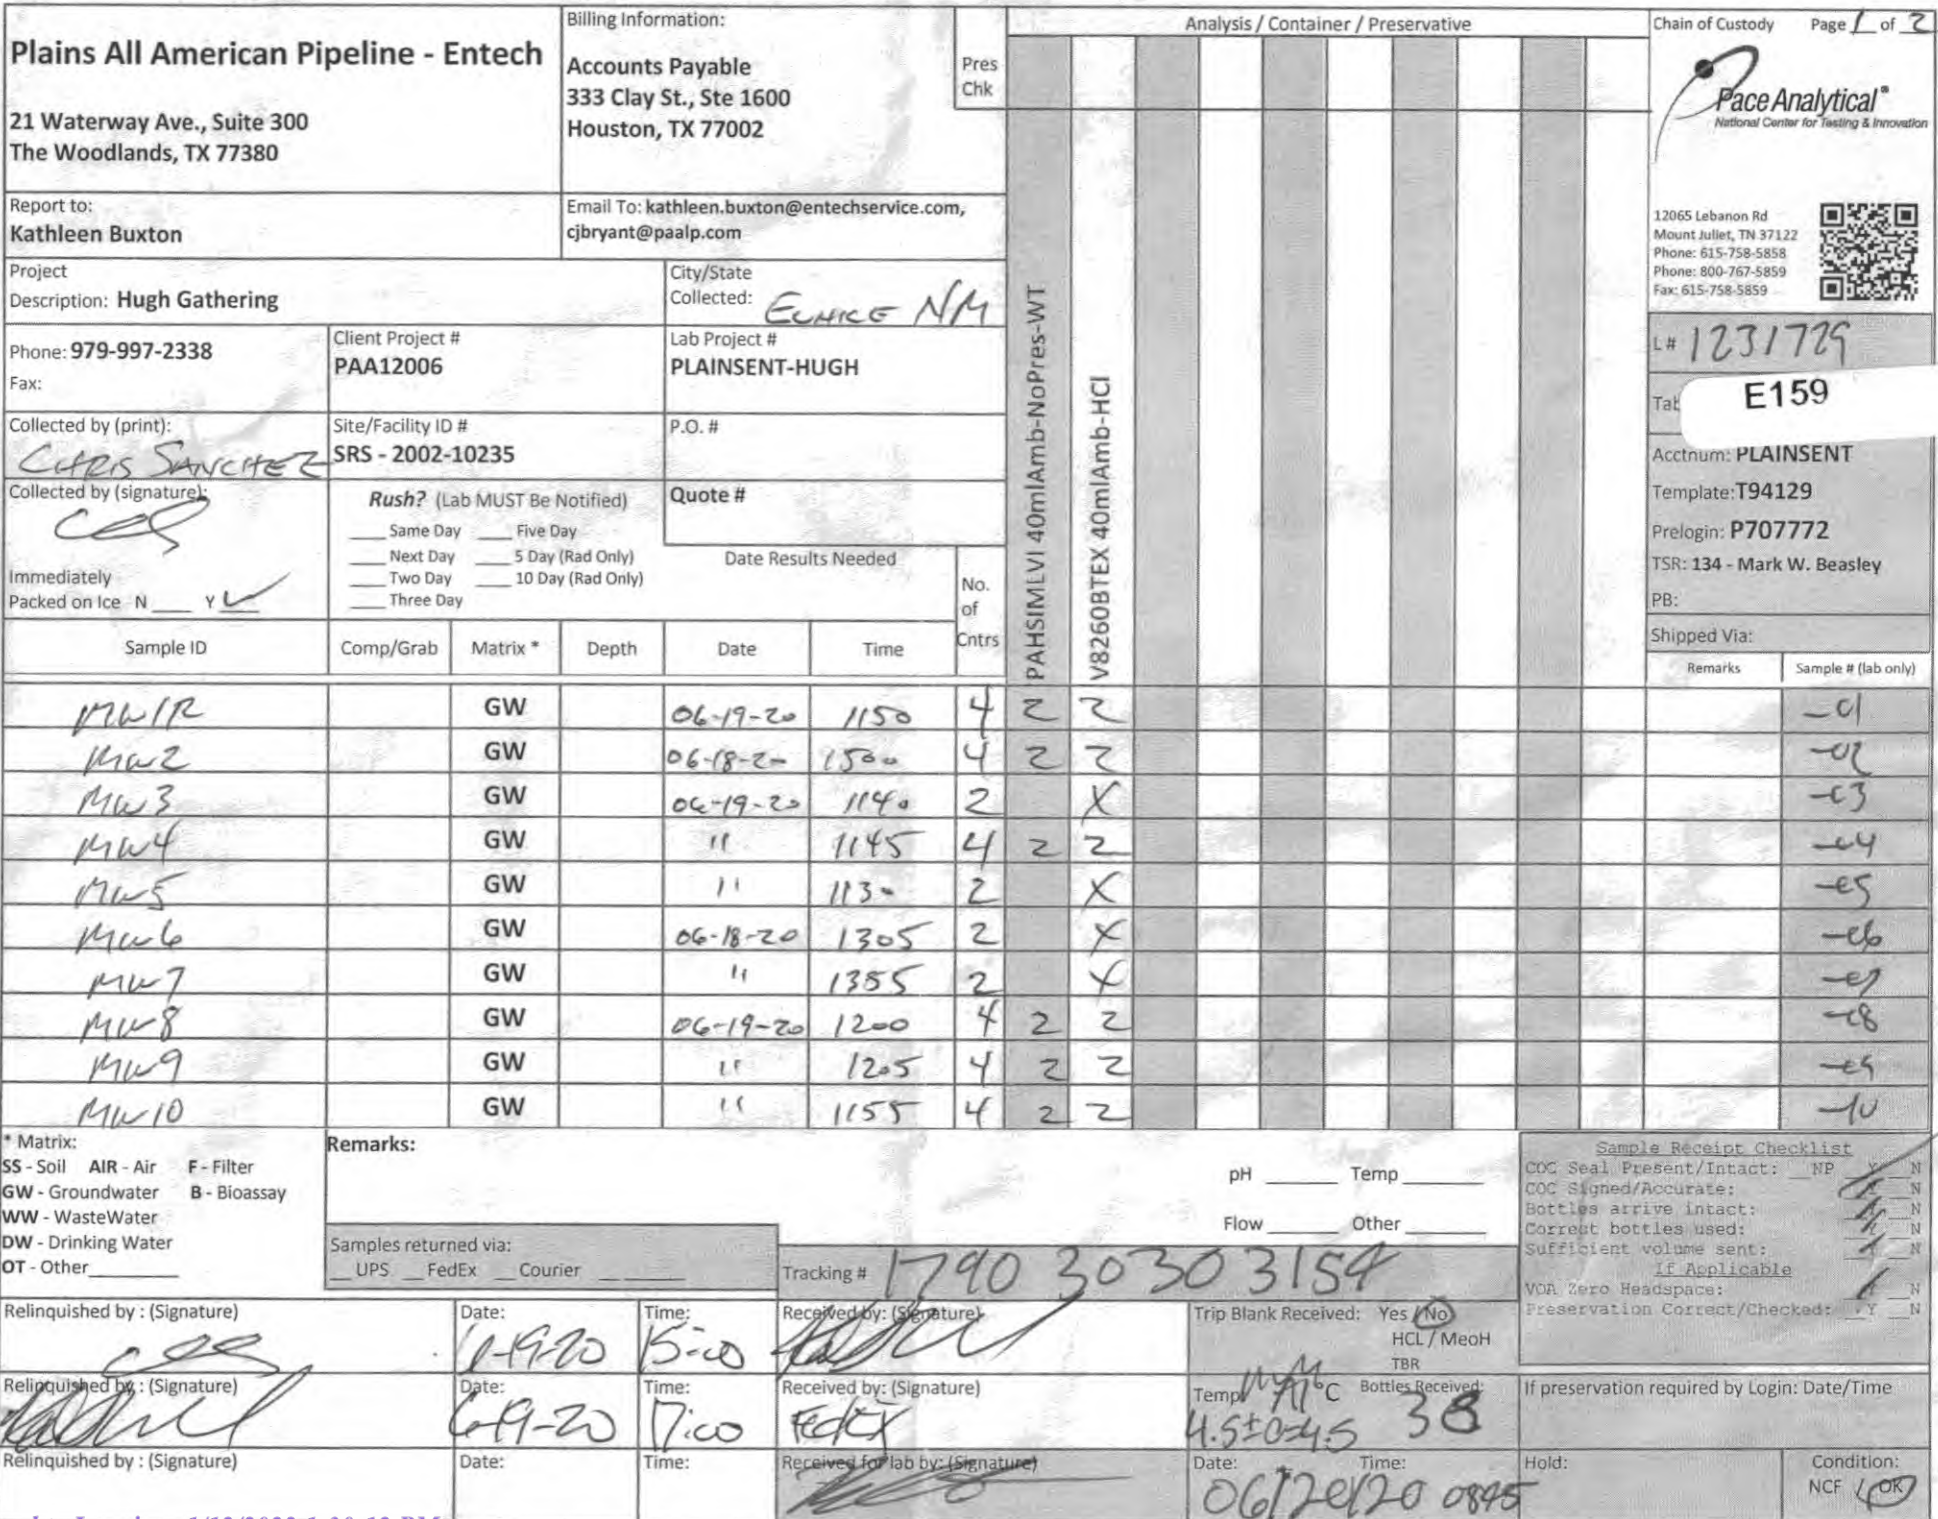 Plains All American Pipeline - Entech
21 Waterway Ave., Suite 300
The Woodlands, TX 77380
Billing Information:
Accounts Payable
333 Clay St., Ste 1600
Houston, TX 77002
Pres
Chk
Analysis / Container / Preservative
Chain of Custody Page 1 of 2
Pace Analytical®
National Center for Testing & Innovation
12065 Lebanon Rd
Mount Juliet, TN 37122
Phone: 615-758-5858
Phone: 800-767-5859
Fax: 615-758-5859
Report to:
Kathleen Buxton
Email To: kathleen.buxton@entechservice.com,
cjbryant@paalp.com
Project
Description: Hugh Gathering
City/State
Collected: EUNICE NM
Phone: 979-997-2338
Fax:
Client Project #
PAA12006
Lab Project #
PLAINSENT-HUGH
Collected by (print):
CHRIS SANCHEZ
Site/Facility ID #
SRS - 2002-10235
P.O. #
Collected by (signature):
Rush? (Lab MUST Be Notified)
Same Day Five Day
Next Day 5 Day (Rad Only)
Two Day 10 Day (Rad Only)
Three Day
Quote #
Date Results Needed
Immediately
Packed on Ice N Y
No.
of
Cntrs
PAHSIMLVI 40mlAmb-NoPres-WT
V8260BTEX 40mlAmb-HCl
L# 1231729
E159
Acctnum: PLAINSENT
Template: T94129
Prelogin: P707772
TSR: 134 - Mark W. Beasley
PB:
Shipped Via:
Sample ID Comp/Grab Matrix * Depth Date Time Remarks Sample # (lab only)
MW1R GW 06-19-20 1150 4 2 2 -01
MW2 GW 06-18-20 1500 4 2 2 -02
MW3 GW 06-19-20 1140 2 X -03
MW4 GW " 1145 4 2 2 -04
MW5 GW " 1130 2 X -05
MW6 GW 06-18-20 1305 2 X -06
MW7 GW " 1355 2 X -07
MW8 GW 06-19-20 1200 4 2 2 -08
MW9 GW " 1205 4 2 2 -09
MW10 GW " 1155 4 2 2 -10
* Matrix:
SS - Soil AIR - Air F - Filter
GW - Groundwater B - Bioassay
WW - WasteWater
DW - Drinking Water
OT - Other
Remarks:
pH Temp
Flow Other
Samples returned via:
UPS FedEx Courier
Tracking # 1790 3030 3154
Sample Receipt Checklist
COC Seal Present/Intact: NP Y N
COC Signed/Accurate: Y N
Bottles arrive intact: Y N
Correct bottles used: Y N
Sufficient volume sent: Y N
If Applicable
VOA Zero Headspace: Y N
Preservation Correct/Checked: Y N
Relinquished by : (Signature) Date: 6-19-20 Time: 15:00 Received by: (Signature)
Trip Blank Received: Yes / No
HCL / MeoH
TBR
Relinquished by : (Signature) Date: 6-19-20 Time: 17:00 Received by: (Signature) FedEx
Temp °C Bottles Received:
4.5±0=4.5 38
If preservation required by Login: Date/Time
Relinquished by : (Signature) Date: Time: Received for lab by: (Signature)
Date: 06/20/20 Time: 0845
Hold:
Condition:
NCF / OK